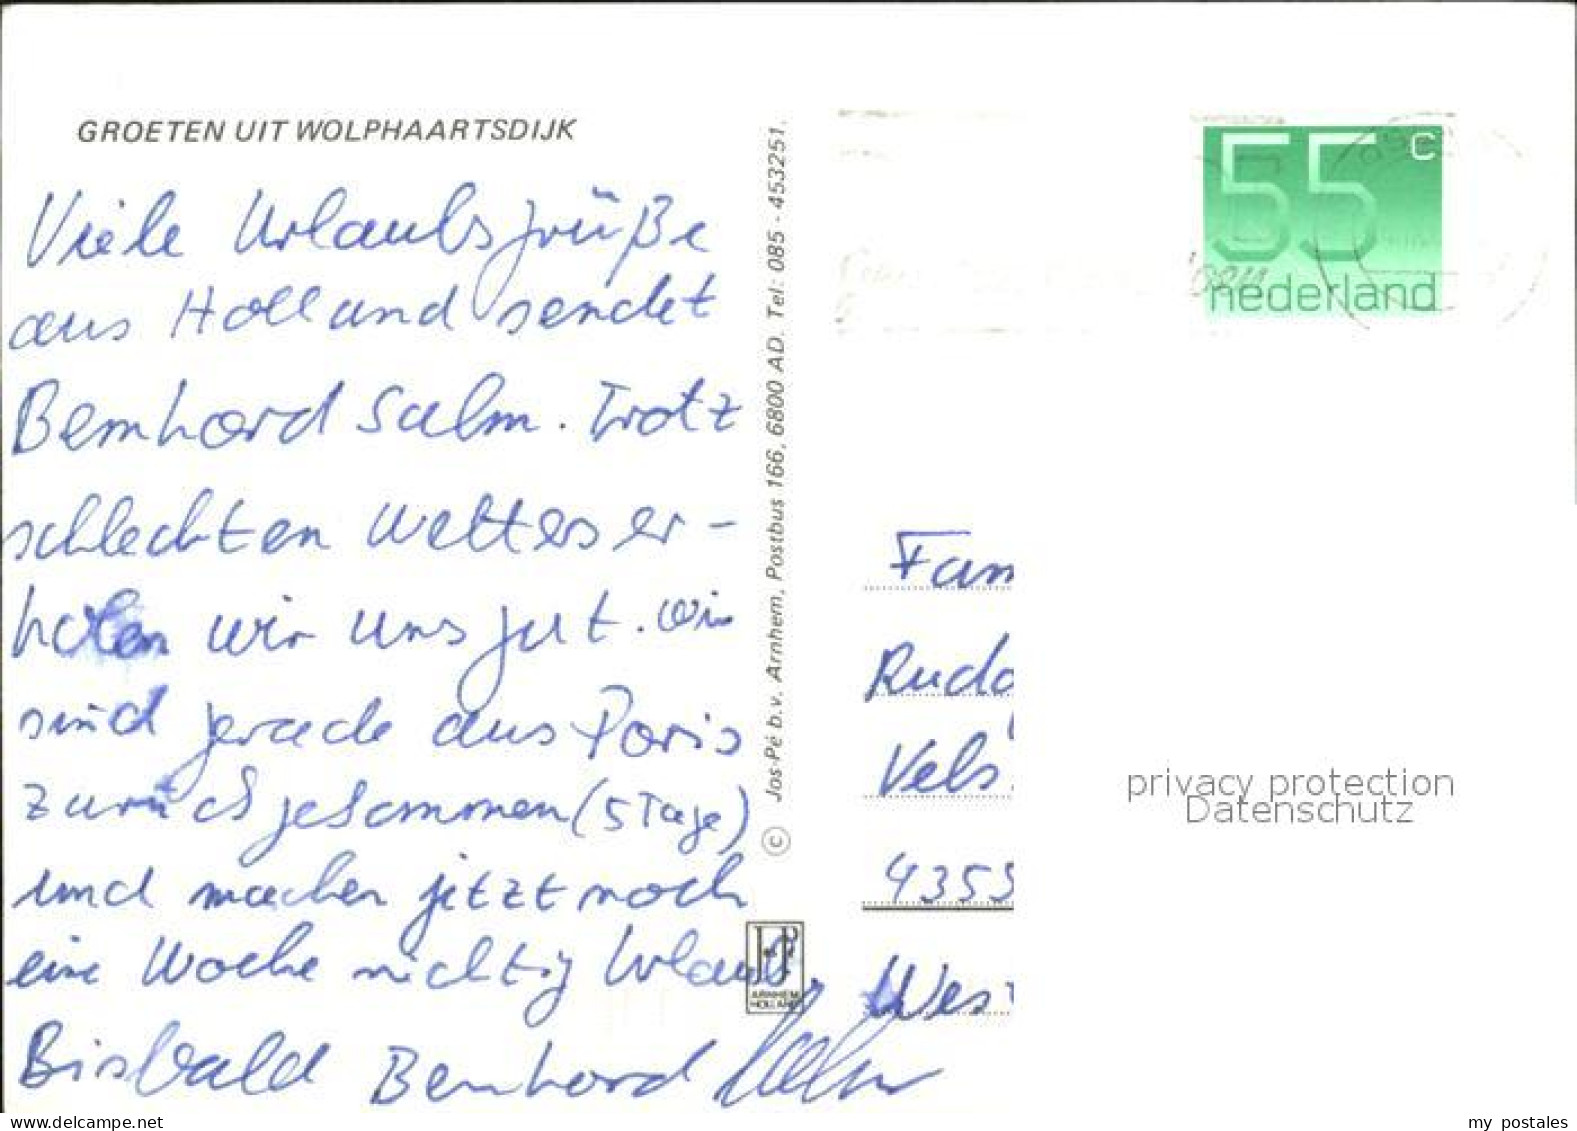 GROETEN UIT WOLPHAARTSDIJK
Viele Urlaubsgrüße
aus Holland sendet
Bernhard Salm. Trotz
schlechten Wetters er-
holen wir uns gut. Wir
sind gerade aus Paris
zurückgekommen (5 Tage)
und machen jetzt noch
eine Woche richtig Urlaub.
Bis bald Bernhard Salm
© Jos-Pé b.v. Arnhem, Postbus 166, 6800 AD. Tel: 085 - 453251.
JosP
ARNHEM
HOLLAND
55 c
nederland
Fam
Rudo
Vels
4353
West
privacy protection
Datenschutz
www.delcampe.net
my_postales